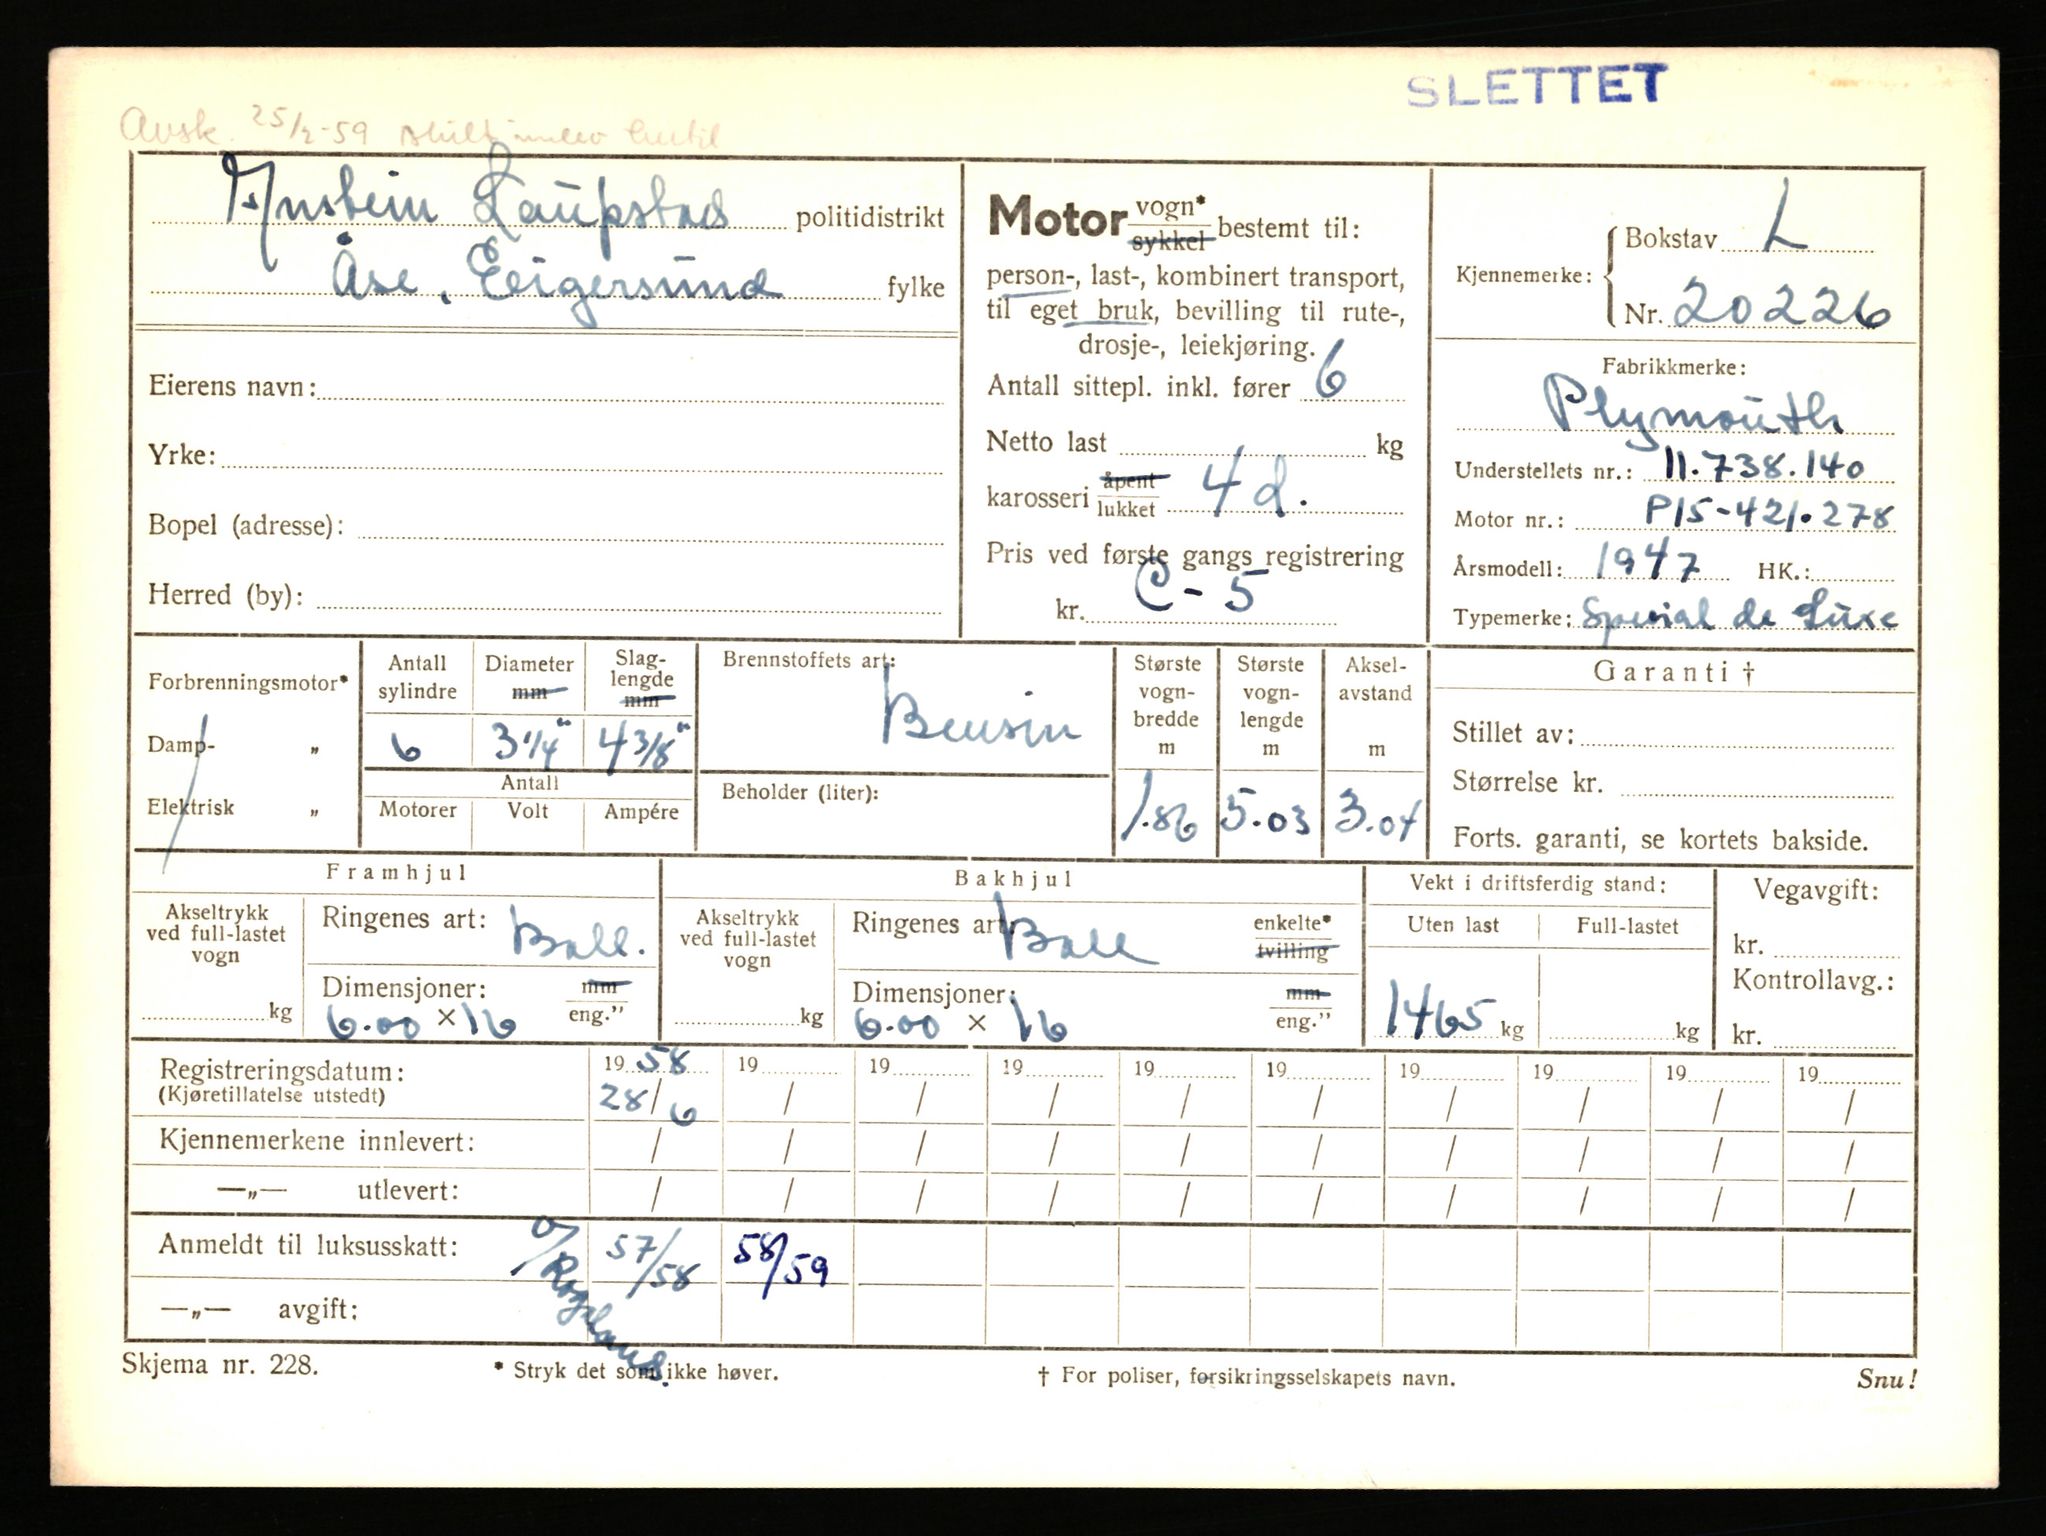 SLETTET
Avsk. 25/2-59
Laupstad politidistrikt
Åse, Eigersund fylke
Eierens navn:
Yrke:
Bopel (adresse):
Herred (by):
Motor vogn* sykkel bestemt til:
person-, last-, kombinert transport,
til eget bruk, bevilling til rute-,
drosje-, leiekjøring.
Antall sittepl. inkl. fører 6
Netto last kg
karosseri åpent lukket 4 d.
Pris ved første gangs registrering
kr. C-5
Kjennemerke: Bokstav L
Nr. 20226
Fabrikkmerke:
Plymouth
Understellets nr.: 11.738.140
Motor nr.: P15-421.278
Årsmodell: 1947 HK.:
Typemerke: Spesial de Luxe
Forbrenningsmotor*
Damp- „
Elektrisk „
Antall sylindre 6
Diameter mm 3 1/4"
Slaglengde mm 4 3/8"
Antall
Motorer Volt Ampére
Brennstoffets art: Bensin
Beholder (liter):
Største vognbredde m 1.86
Største vognlengde m 5.03
Akselavstand m 3.04
Garanti †
Stillet av:
Størrelse kr.
Forts. garanti, se kortets bakside.
Framhjul
Akseltrykk ved full-lastet vogn kg
Ringenes art: Ball.
Dimensjoner: mm eng."
6.00 × 16
Bakhjul
Akseltrykk ved full-lastet vogn kg
Ringenes art: Ball enkelte* tvilling
Dimensjoner: mm eng."
6.00 × 16
Vekt i driftsferdig stand:
Uten last Full-lastet
1465 kg kg
Vegavgift:
kr.
Kontrollavg.:
kr.
Registreringsdatum: 19 58 19 19 19 19 19 19 19 19 19
(Kjøretillatelse utstedt) 28/6 / / / / / / / / /
Kjennemerkene innlevert: / / / / / / / / / /
—„— utlevert: / / / / / / / / / /
Anmeldt til luksusskatt: 57/58 58/59
Rogaland.
—„— avgift:
Skjema nr. 228.
* Stryk det som ikke høver.
† For poliser, forsikringsselskapets navn.
Snu!